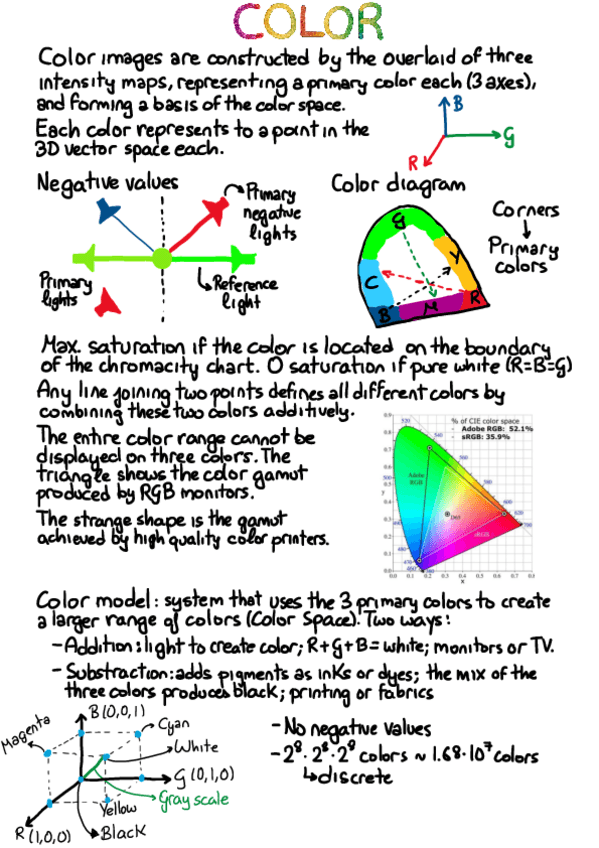 COLOR
Color images are constructed by the overlaid of three
intensity maps, representing a primary color each (3 axes),
and forming a basis of the color space.
Each color represents to a point in the
3D vector space each.
B
G
R
Negative values
Primary
negative
lights
Primary
lights
Reference
light
Color diagram
G
Y
C
B
M
R
Corners
Primary
colors
Max. saturation if the color is located on the boundary
of the chromacity chart. 0 saturation if pure white (R=B=G)
Any line joining two points defines all different colors by
combining these two colors additively.
The entire color range cannot be
displayed on three colors. The
triangle shows the color gamut
produced by RGB monitors.
The strange shape is the gamut
achieved by high quality color printers.
% of CIE color space
- Adobe RGB: 52.1%
- sRGB: 35.9%
520
540
560
500
580
600
620
700
480
470
460
Adobe
RGB
D65
sRGB
y
0.9
0.8
0.7
0.6
0.5
0.4
0.3
0.2
0.1
0.0
0.0 0.1 0.2 0.3 0.4 0.5 0.6 0.7 0.8
x
Color model: system that uses the 3 primary colors to create
a larger range of colors (Color Space). Two ways:
- Addition: light to create color; R+G+B= white; monitors or TV.
- Substraction: adds pigments as inks or dyes; the mix of the
three colors produces black; printing or fabrics
B(0,0,1)
Magenta
Cyan
White
G (0,1,0)
Gray scale
Yellow
Black
R (1,0,0)
- No negative values
- 2⁸ · 2⁸ · 2⁸ colors ~ 1.68·10⁷ colors
↳ discrete